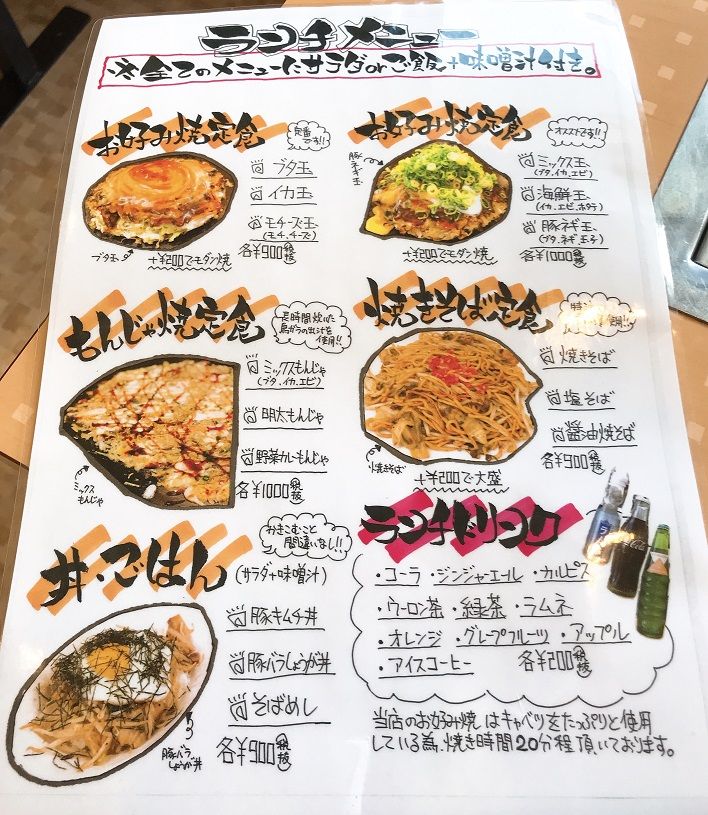 ランチメニュー
※全てのメニューにサラダorご飯+味噌汁付き。
お好み焼定食
定番です!!
ブタ玉
イカ玉
モチーズ玉
(モチ、チーズ)
各¥900税抜
ブタ玉
+¥200でモダン焼
お好み焼定食
オススメです!!
豚ネギ玉
ミックス玉
(ブタ、イカ、エビ)
海鮮玉
(イカ、エビ、ホタテ)
豚ネギ玉
(ブタ、ネギ、玉子)
各¥1000税抜
+¥200でモダン焼
もんじゃ焼定食
長時間炊いた
鳥ガラの出汁を
使用!!
ミックスもんじゃ
(ブタ、イカ、エビ)
明太もんじゃ
野菜カレーもんじゃ
各¥1000税抜
ミックス
もんじゃ
焼きそば定食
焼きそば
塩そば
醤油焼そば
各¥900税抜
焼きそば
+¥200で大盛
丼・ごはん
おきこむこと
間違いなし!!
(サラダ+味噌汁)
豚キムチ丼
豚バラしょうが丼
そばめし
各¥900税抜
豚バラ
しょうが丼
ランチドリンク
・コーラ ・ジンジャーエール ・カルピス
・ウーロン茶 ・緑茶 ・ラムネ
・オレンジ ・グレープフルーツ ・アップル
・アイスコーヒー 各¥200税抜
当店のお好み焼はキャベツをたっぷりと使用
している為、焼き時間20分程頂いております。